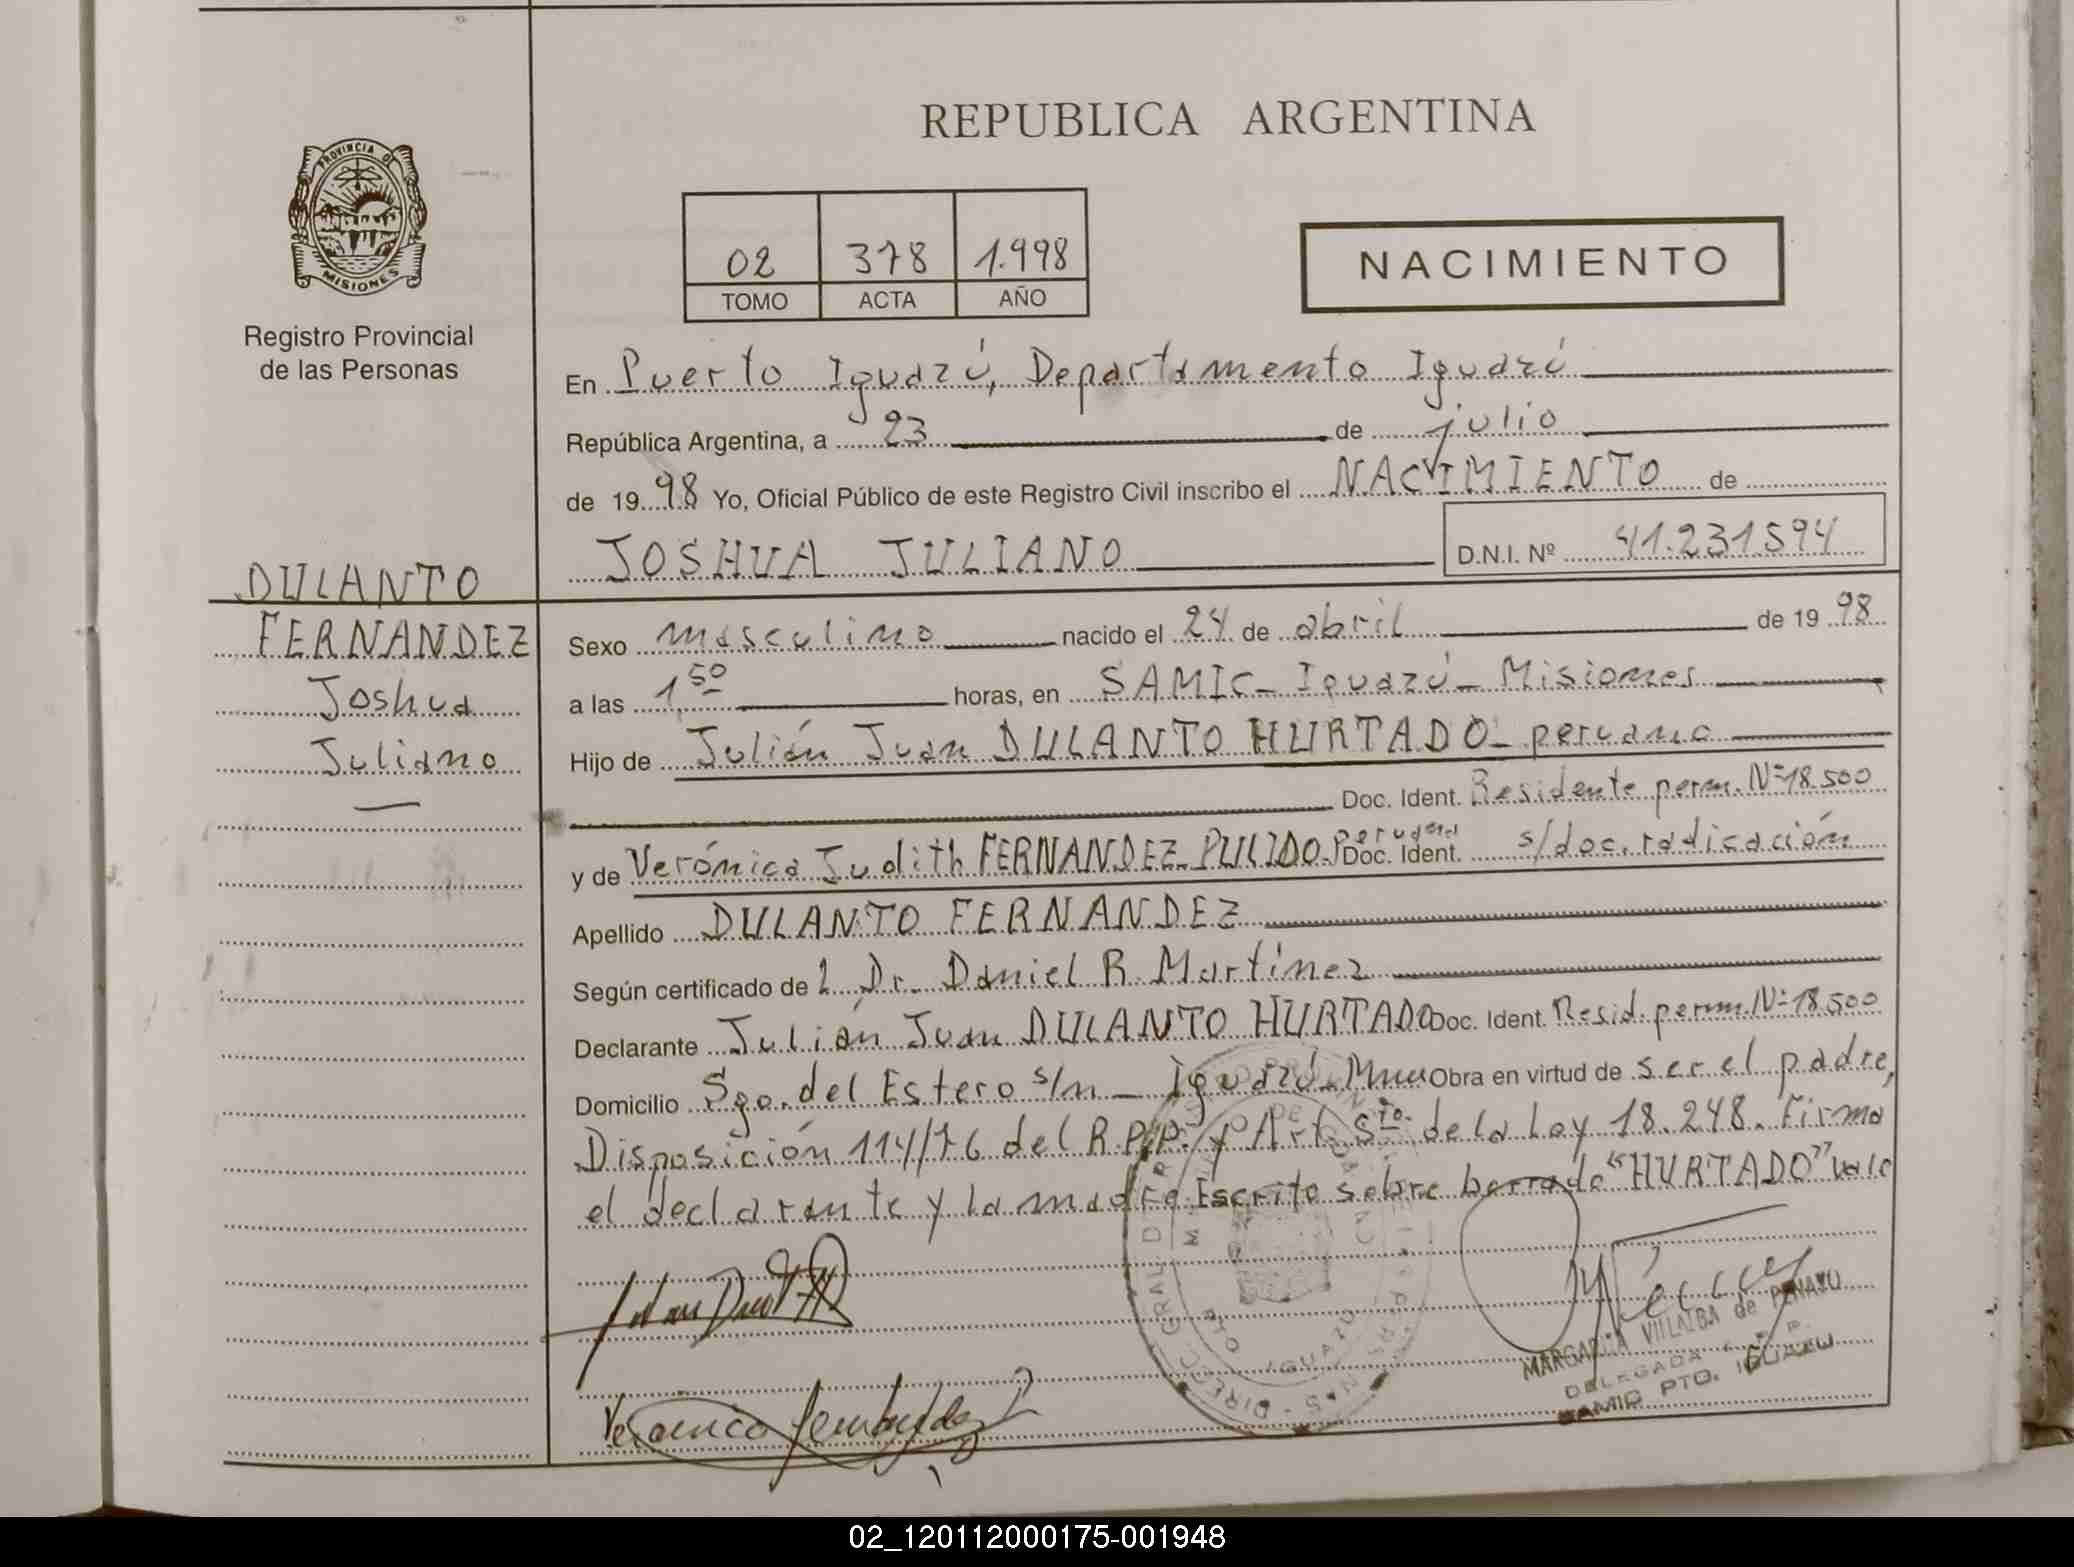 REPUBLICA ARGENTINA
PROVINCIA DE
MISIONES
Registro Provincial
de las Personas
02 378 1.998
TOMO ACTA AÑO
NACIMIENTO
En Puerto Iguazú, Departamento Iguazú
República Argentina, a 23 de julio
de 1998 Yo, Oficial Público de este Registro Civil inscribo el NACIMIENTO de
JOSHUA JULIANO D.N.I. Nº 41.231.594
DULANTO
FERNANDEZ
Joshua
Juliano
Sexo masculino nacido el 24 de abril de 1998
a las 1,50 horas, en SAMIC - Iguazú - Misiones
Hijo de Julián Juan DULANTO HURTADO - peruano
Doc. Ident. Residente perm. Nº 18.500
y de Verónica Judith FERNANDEZ PULIDO. Peruana Doc. Ident. s/doc. radicación
Apellido DULANTO FERNANDEZ
Según certificado del Dr. Daniel R. Martínez
Declarante Julián Juan DULANTO HURTADO Doc. Ident. Resid. perm. Nº 18.500
Domicilio Sgo. del Estero s/n - Iguazú - Obra en virtud de ser el padre,
Disposición 114/76 del R.P.P. y Art. 5to. de la Ley 18.248. Firma
el declarante y la madre. Escrito sobre borrado "HURTADO" vale
Veronica Fernandez P
MARGARITA VILLALBA de PENAYO
DELEGADA R. P. P.
SAMIC PTO. IGUAZU
02_120112000175-001948